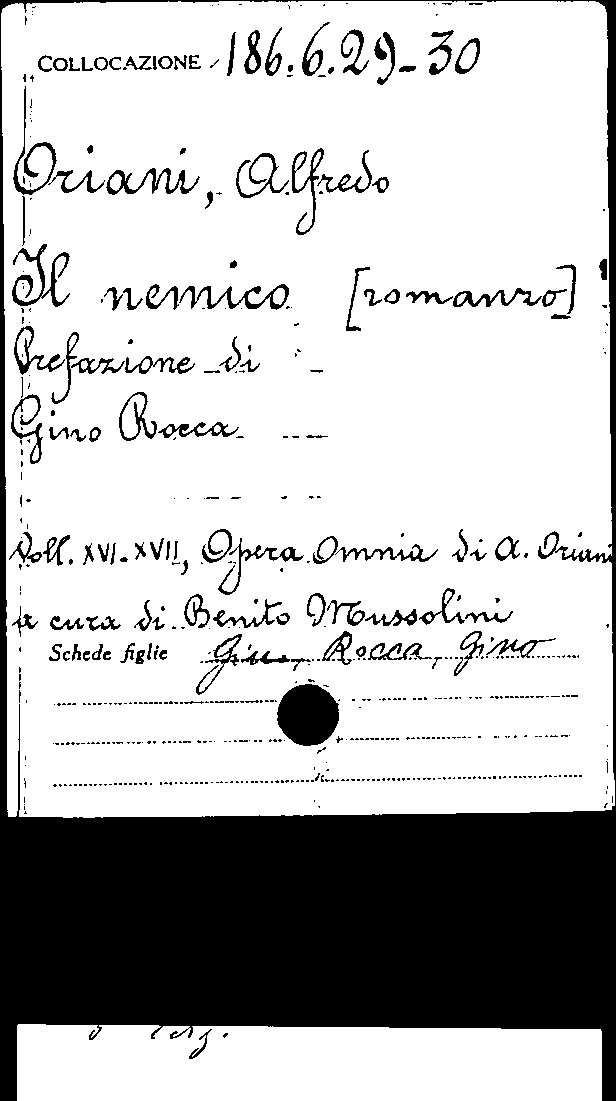 COLLOCAZIONE 186.6.29-30
Oriani, Alfredo
Il nemico [romanzo]
Prefazione di
Gino Rocca
Voll. XVI-XVII, Opera Omnia di A. Oriani
a cura di Benito Mussolini
Schede figlie Rocca, Gino